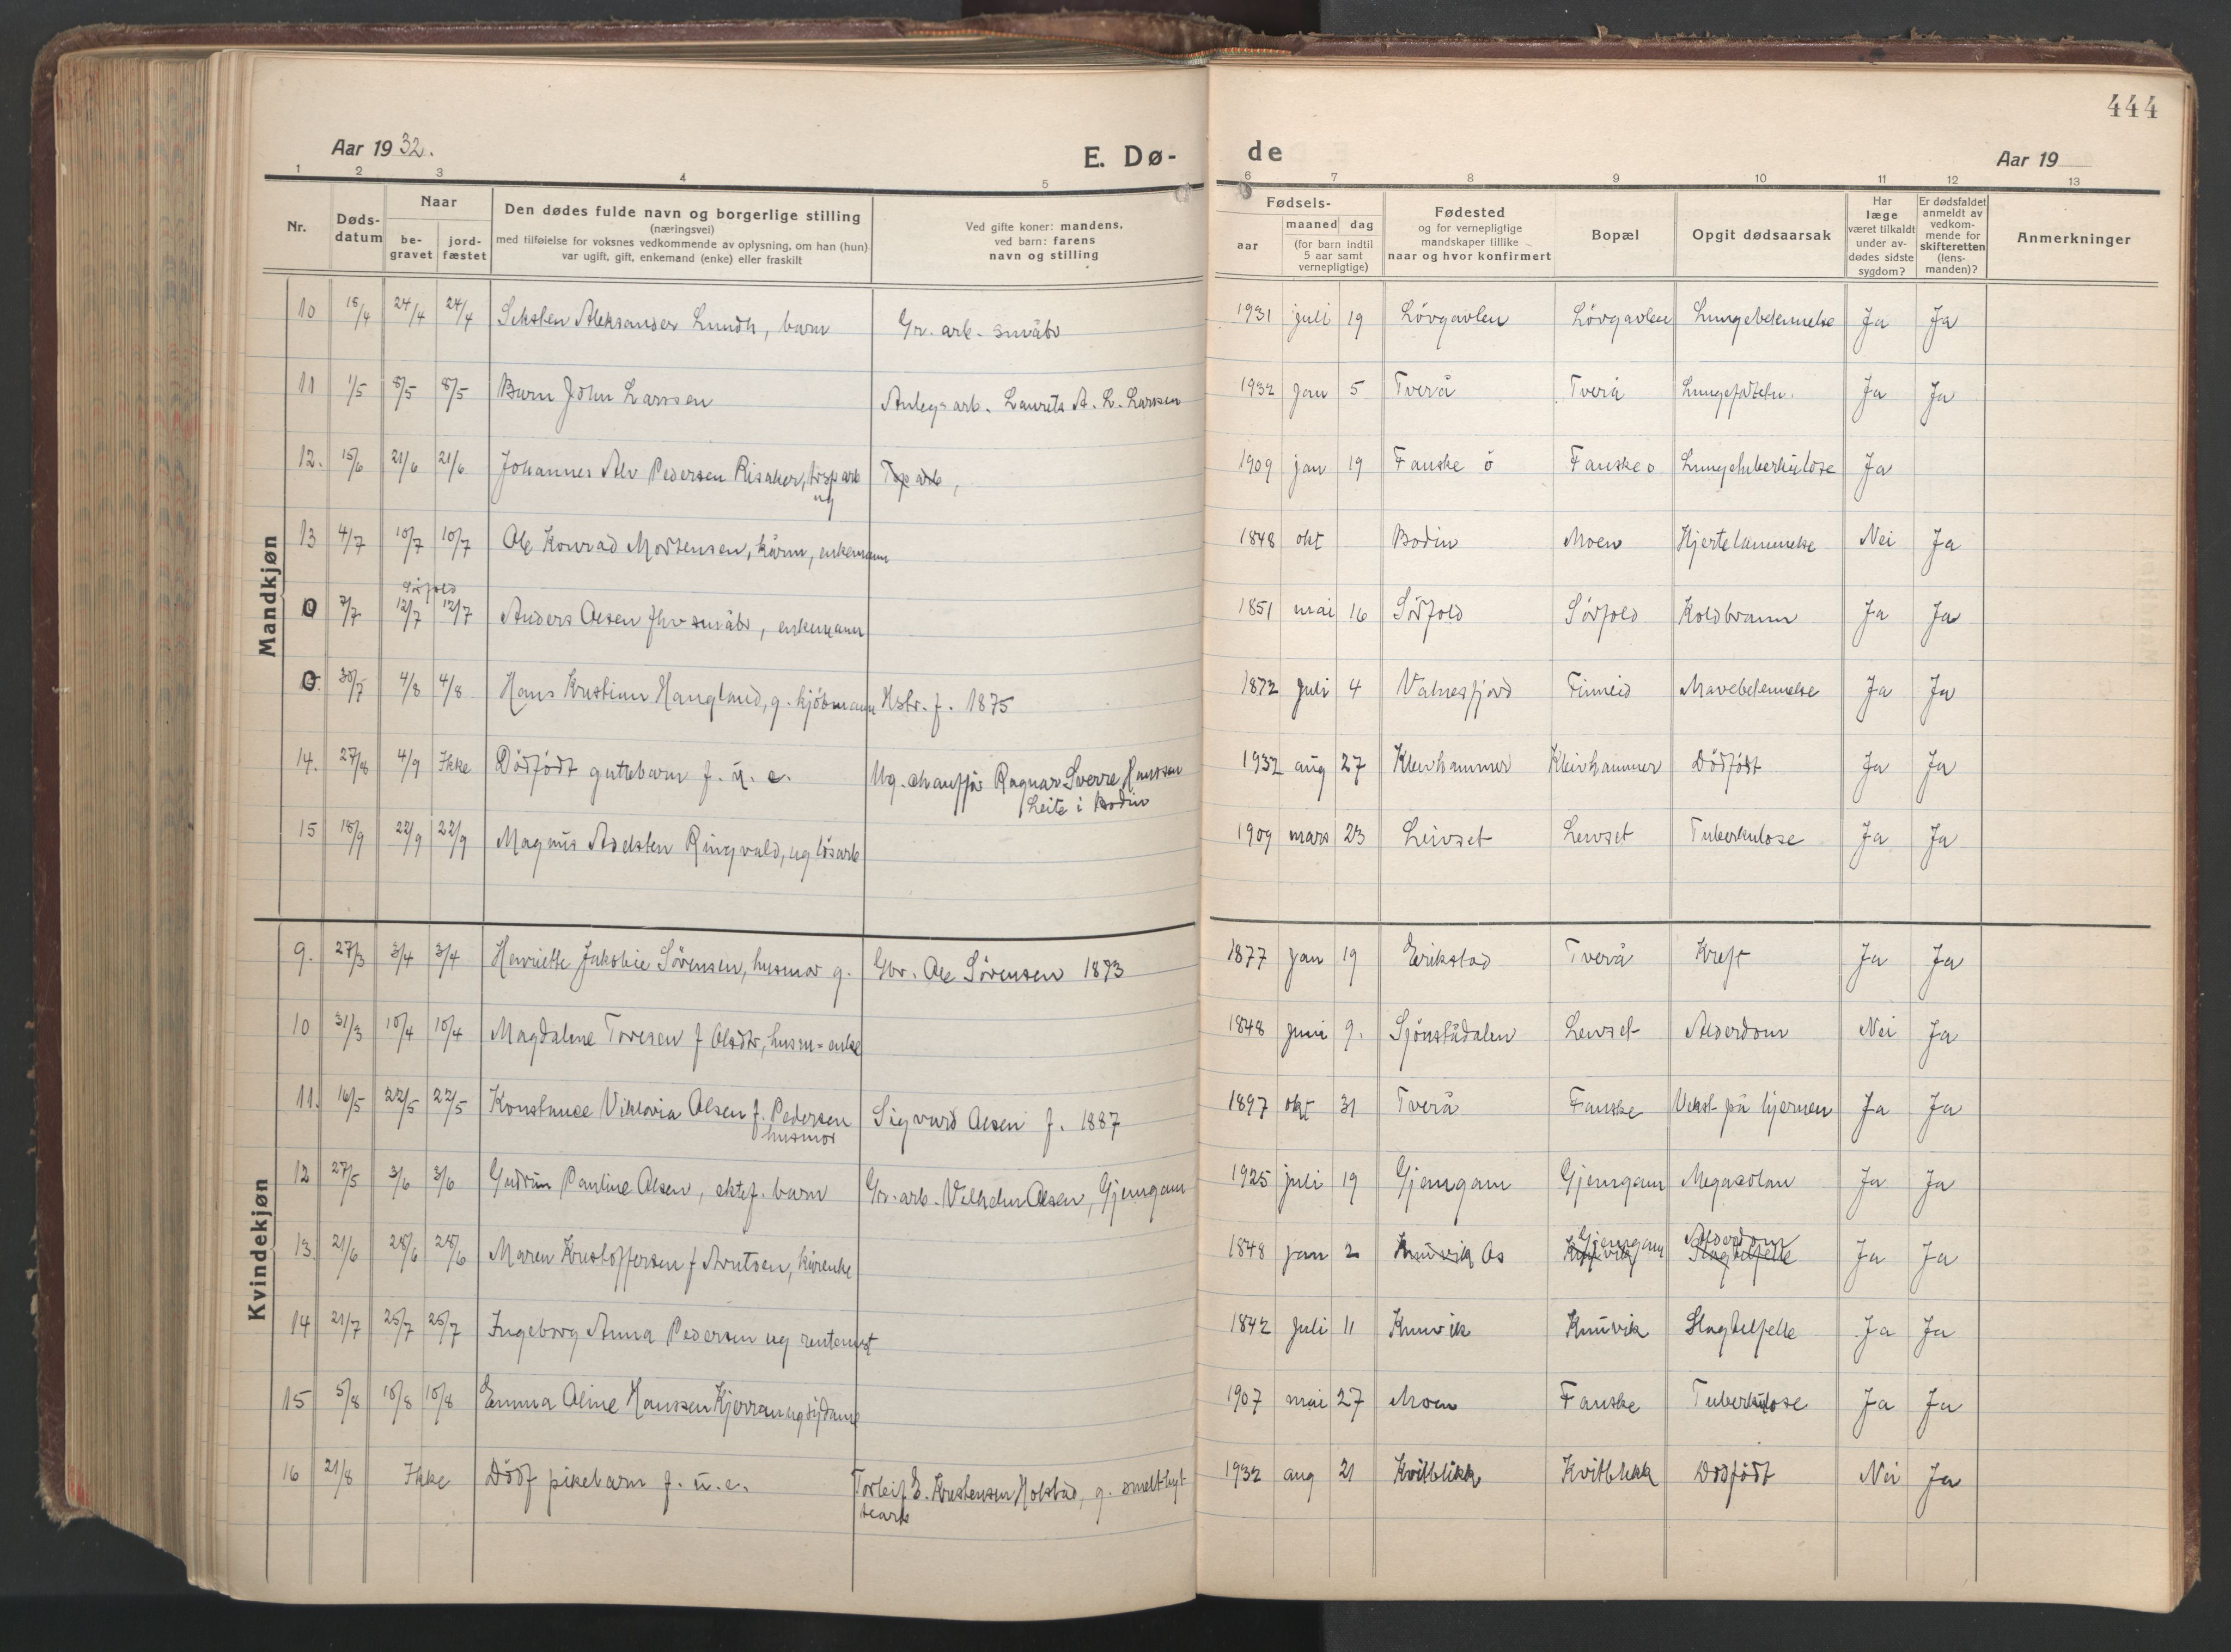 444
Aar 1932.
E. Dø-
de
Aar 19
1 2 3 4 5 6 7 8 9 10 11 12 13
Nr.
Døds-
datum
Naar
be-
gravet
jord-
fæstet
Den dødes fulde navn og borgerlige stilling
(næringsvei)
med tilføielse for voksnes vedkommende av oplysning, om han (hun)
var ugift, gift, enkemand (enke) eller fraskilt
Ved gifte koner: mandens,
ved barn: farens
navn og stilling
Fødsels-
aar
maaned dag
(for barn indtil
5 aar samt
vernepligtige)
Fødested
og for vernepligtige
mandskaper tillike
naar og hvor konfirmert
Bopæl
Opgit dødsaarsak
Har
læge
været tilkaldt
under av-
dødes sidste
sygdom?
Er dødsfaldet
anmeldt av
vedkom-
mende for
skifteretten
(lens-
manden)?
Anmerkninger
Mandkjøn
10 18/4 24/4 24/4 Aleksander Lundh, barn Gr. arb. småbr 1931 juli 19 Lövgavlen Lövgavlen Lungebetennelse Ja Ja
11 1/5 8/5 8/5 Barn John Larssen Anlegsarb. A. L. Larssen 1932 jan 5 Tverå Tverå Ja Ja
12. 15/6 21/6 21/6 Johannes Alv Pedersen Risaker, ug 1909 jan 19 Fauske ö Fauske o Lungetuberkulose Ja
13 4/7 10/7 10/7 Ole Konrad Mortensen, kårm, enkemann 1848 okt Bodin Moen Hjertelammelse Nei Ja
Sörfold
7/7 12/7 12/7 Anders Olsen fhv småbr, enkemann 1851 mai 16 Sörfold Sörfold Koldbrann Ja Ja
30/7 4/8 4/8 Hans Kristian Haugland, g. kjöbmann Hstr. f. 1875 1872 juli 4 Valnesfjord Finneid Mavebetennelse Ja Ja
14. 27/8 4/9 Ikke Dödfödt guttebarn f. u. e. Ug. chauffør Ragnar Sverre Hanssen
Leite i Bodin 1932 aug 27 Kleivhammer Kleivhammer Dödfödt Ja Ja
15 18/9 22/9 22/9 Magnus Adelsten Ringvald, ug lösarb 1909 mars 23 Leivset Leivset Tuberkulose Ja Ja
Kvindekjøn
9. 27/3 3/4 3/4 Henriette Jakobie Sörensen, husmor g. Gbr. Ole Sörensen 1873 1877 jan 19 Erikstad Tverå Kreft Ja Ja
10 31/3 10/4 10/4 Magdalene Toresen f Olsdtr, husm-enke 1848 juni 9. Sjönstådalen Leivset Alderdom Nei Ja
11. 16/5 22/5 22/5 Konstance Viktoria Olsen f. Pedersen
husmor Sigvard Olsen f. 1887 1897 okt 31 Tverå Fauske Vekst på hjernen Ja Ja
12 27/5 3/6 3/6 Gudrun Pauline Olsen, ektef. barn Gr. arb. Vilhelm Olsen, Gjemgam 1925 juli 19 Gjemgam Gjemgam Megacolon Ja Ja
13. 21/6 28/6 28/6 Maren Kristoffersen f Arntsen, kårenke 1848 jan 2 Knuvik Os Knuvik Gjemgam Slagtilfelle Alderdom Ja Ja
14 21/7 25/7 25/7 Ingeborg Anna Pedersen ug rentenist 1842 Juli 11 Knuvik Knuvik Slagtilfelle Ja Ja
15 5/8 10/8 10/8 Emma Oline Hanssen Kjerran ug sydame 1907 mai 27 Moen Fauske Tuberkulose Ja Ja
16 21/8 Ikke Dödf pikebarn f. u. e. Torleif E. Kristensen Holstad, g. smelthyt
tearb 1932 aug 21 Kvitblikk Kvitblikk Dödfödt Nei Ja